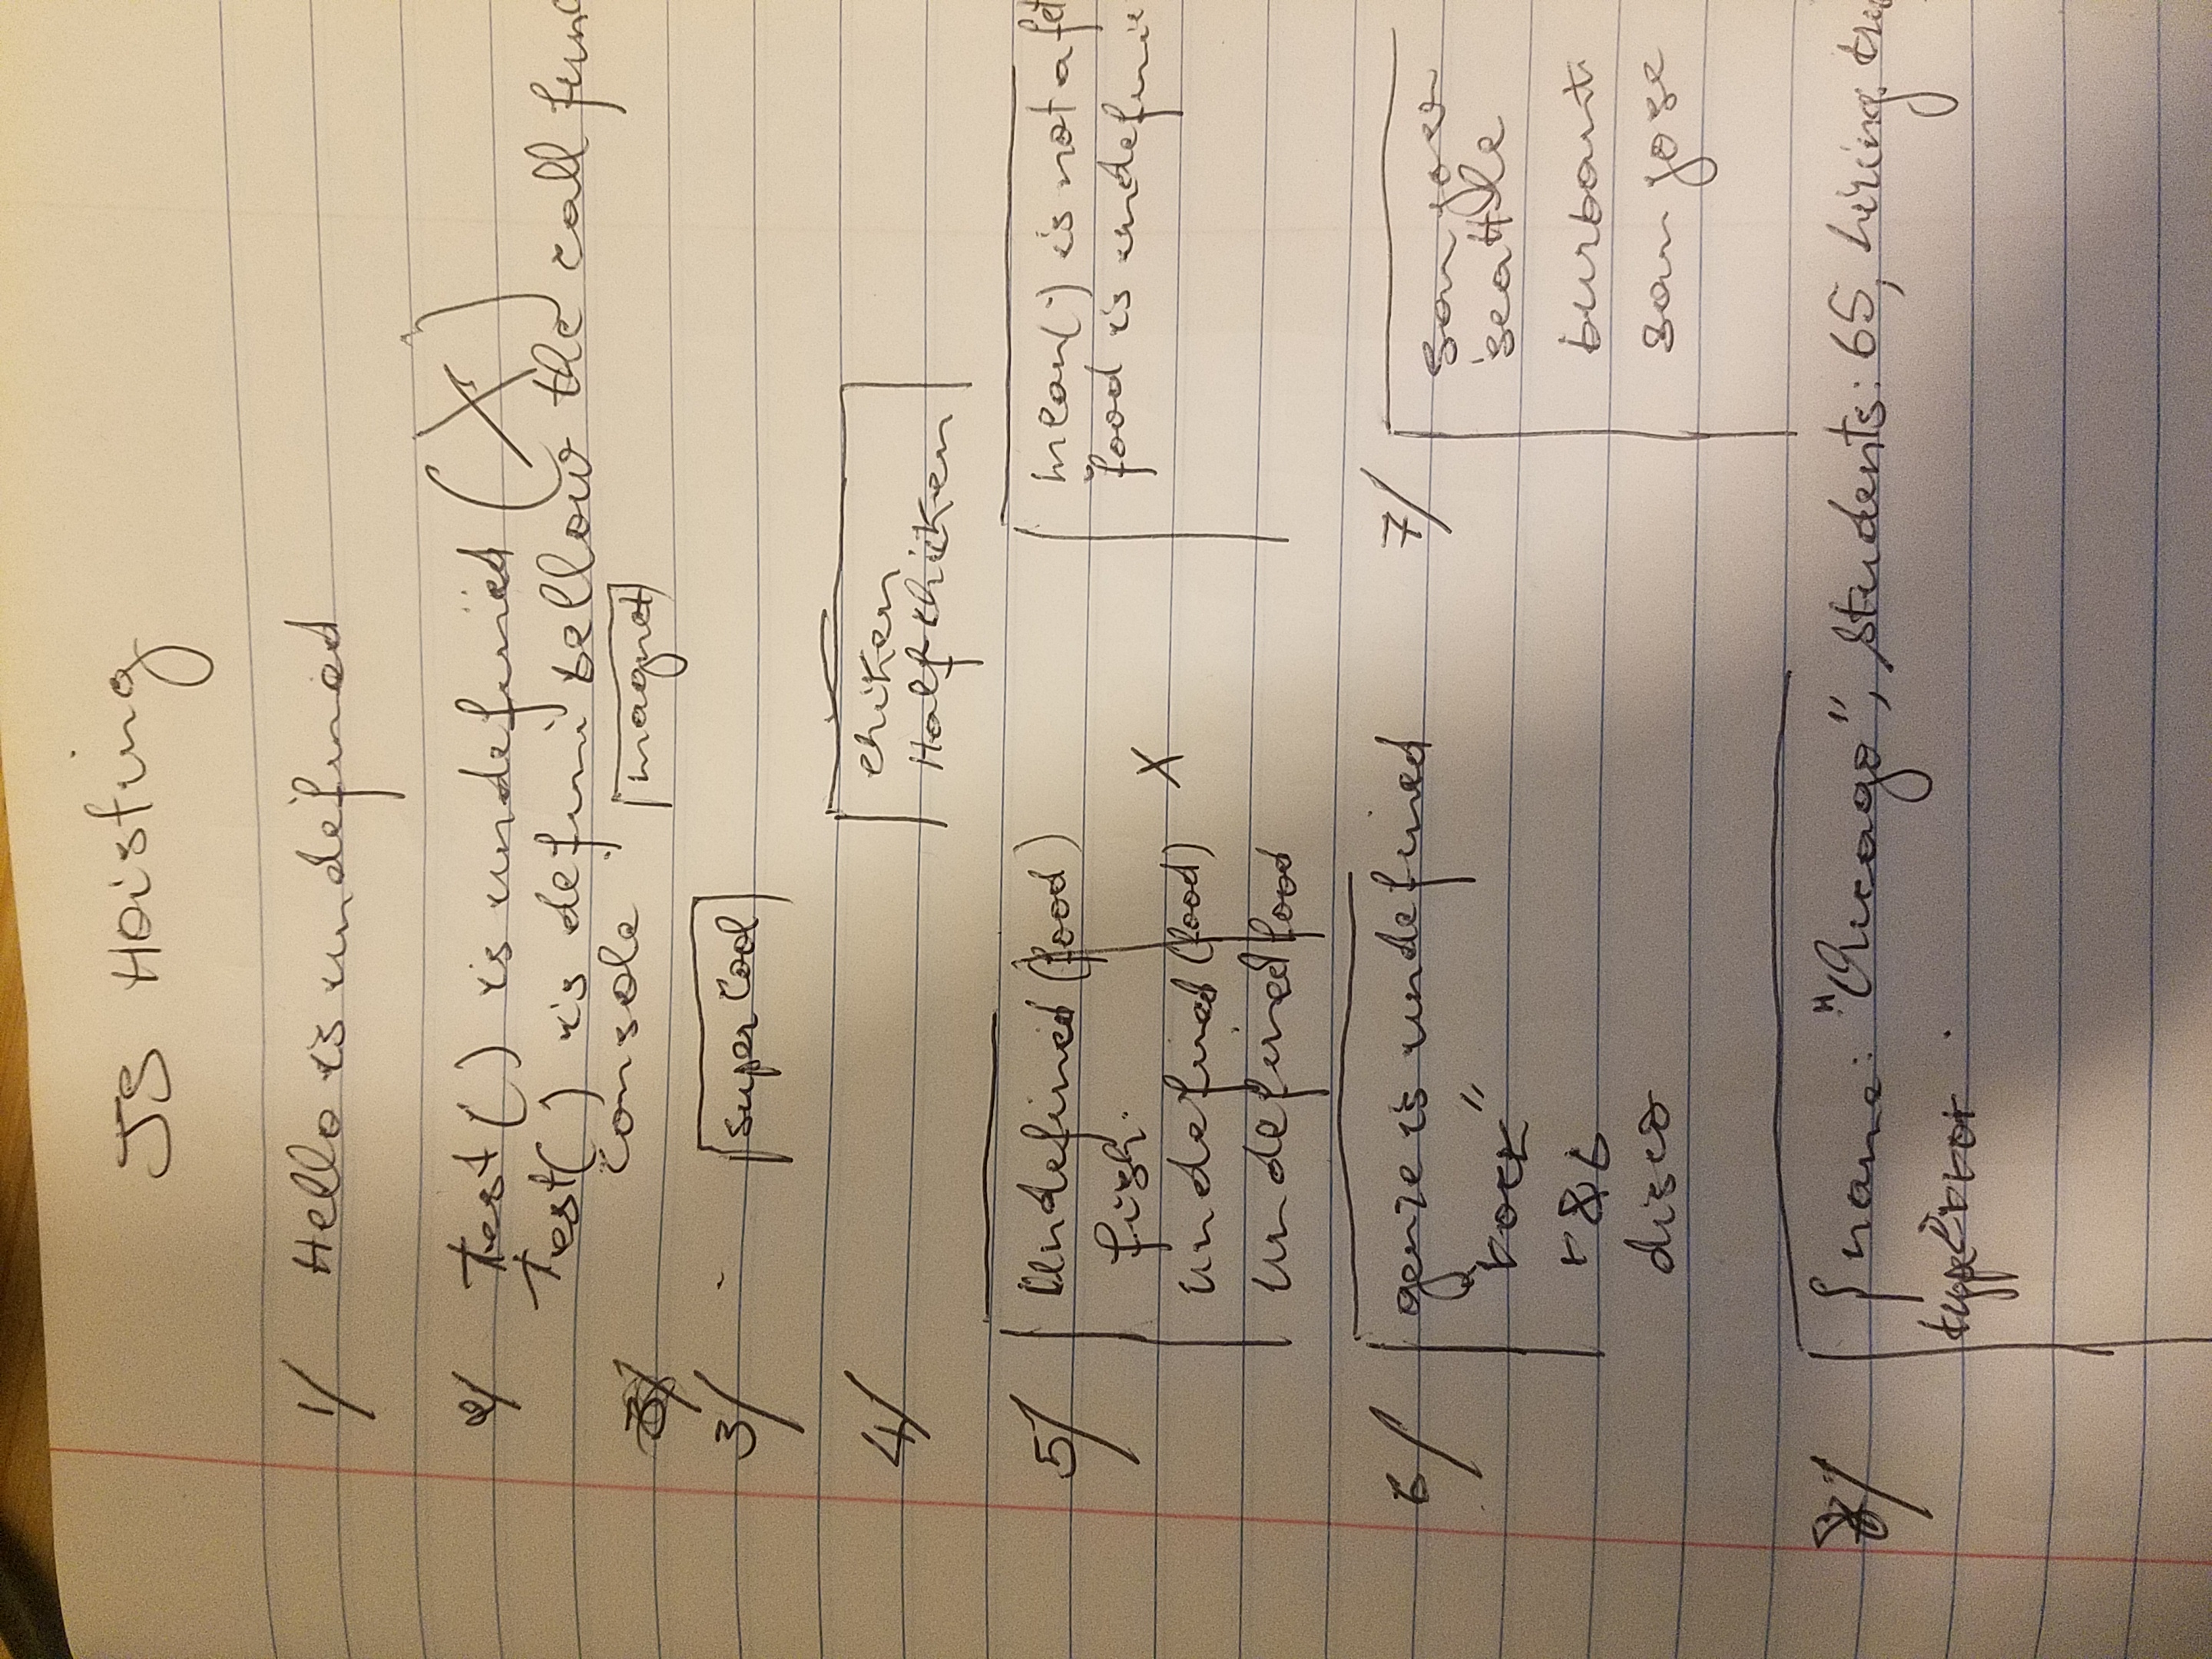 JS Hoisting
1/ Hello is undefined
2/ Test() is undefined (X)
Test() is defini bellow the call func
console magnet
3/ super Cool
4/ chiken
Half chiken
5/ Undefined (food)
fish.
undefined (food) X
undefined food
mean() is not a fct
food is undefine
6/ genre is undefined
"rock"
r&b
disco
7/ san jose
seattle
burbank
san jose
8/ { name: "Chicago", students: 65, hiring: tru
type Error .